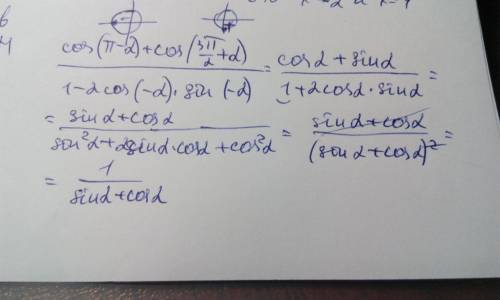 6
(cos(π-α)+cos(3π/2+α))/(1-2cos(-α)·sin(-α)) = (cosα+sinα)/(1+2cosα·sinα) =
= (sinα+cosα)/(sin²α+2sinα·cosα+cos²α) = (sinα+cosα)/(sinα+cosα)² =
= 1/(sinα+cosα)